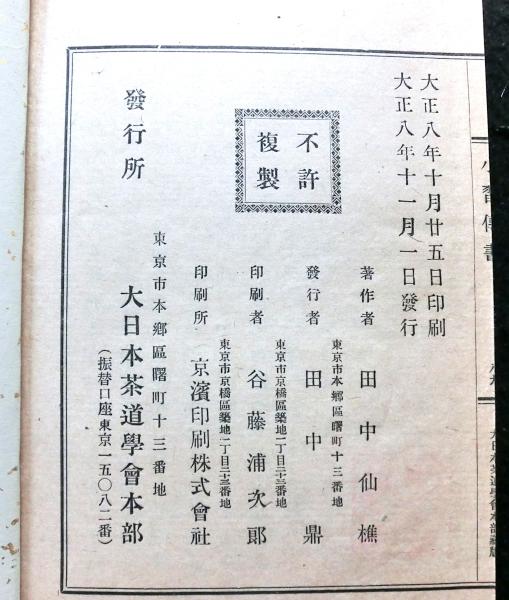 小習傳書
大正八年十月廿五日印刷
大正八年十一月一日發行
不許
複製
著作者 田中仙樵
東京市本鄕區曙町十三番地
發行者 田中鼎
東京市京橋區築地二丁目三十三番地
印刷者 谷藤浦次郞
東京市京橋區築地二丁目三十三番地
印刷所 京濱印刷株式會社
發行所
東京市本鄕區曙町十三番地
大日本茶道學會本部
(振替口座東京一五〇八二番)